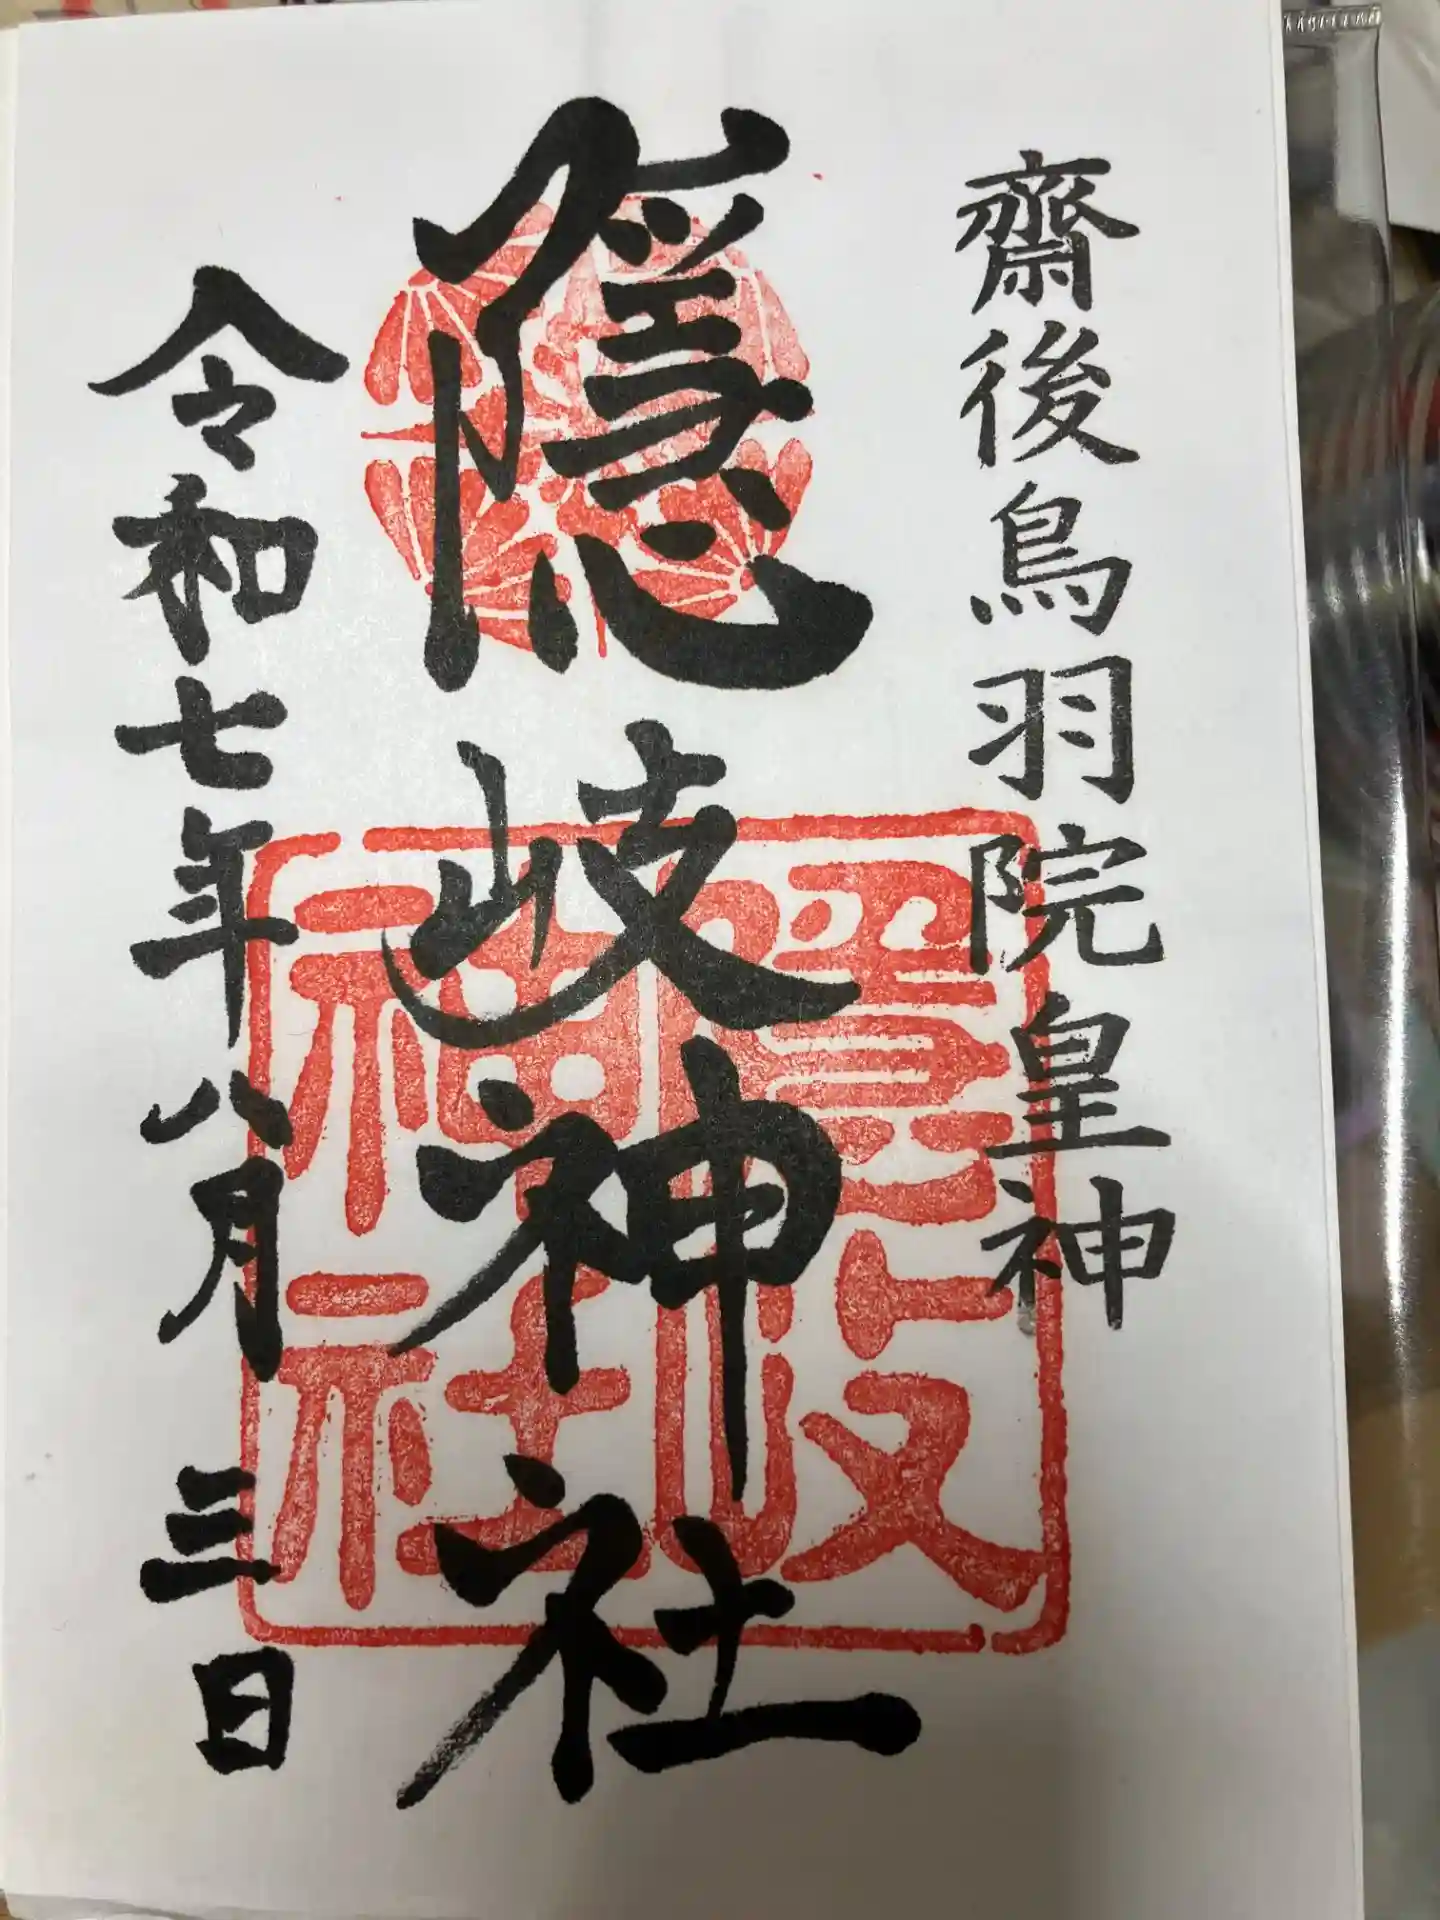 齋後鳥羽院皇神
隠岐神社
隠岐
神社
令和七年八月三日